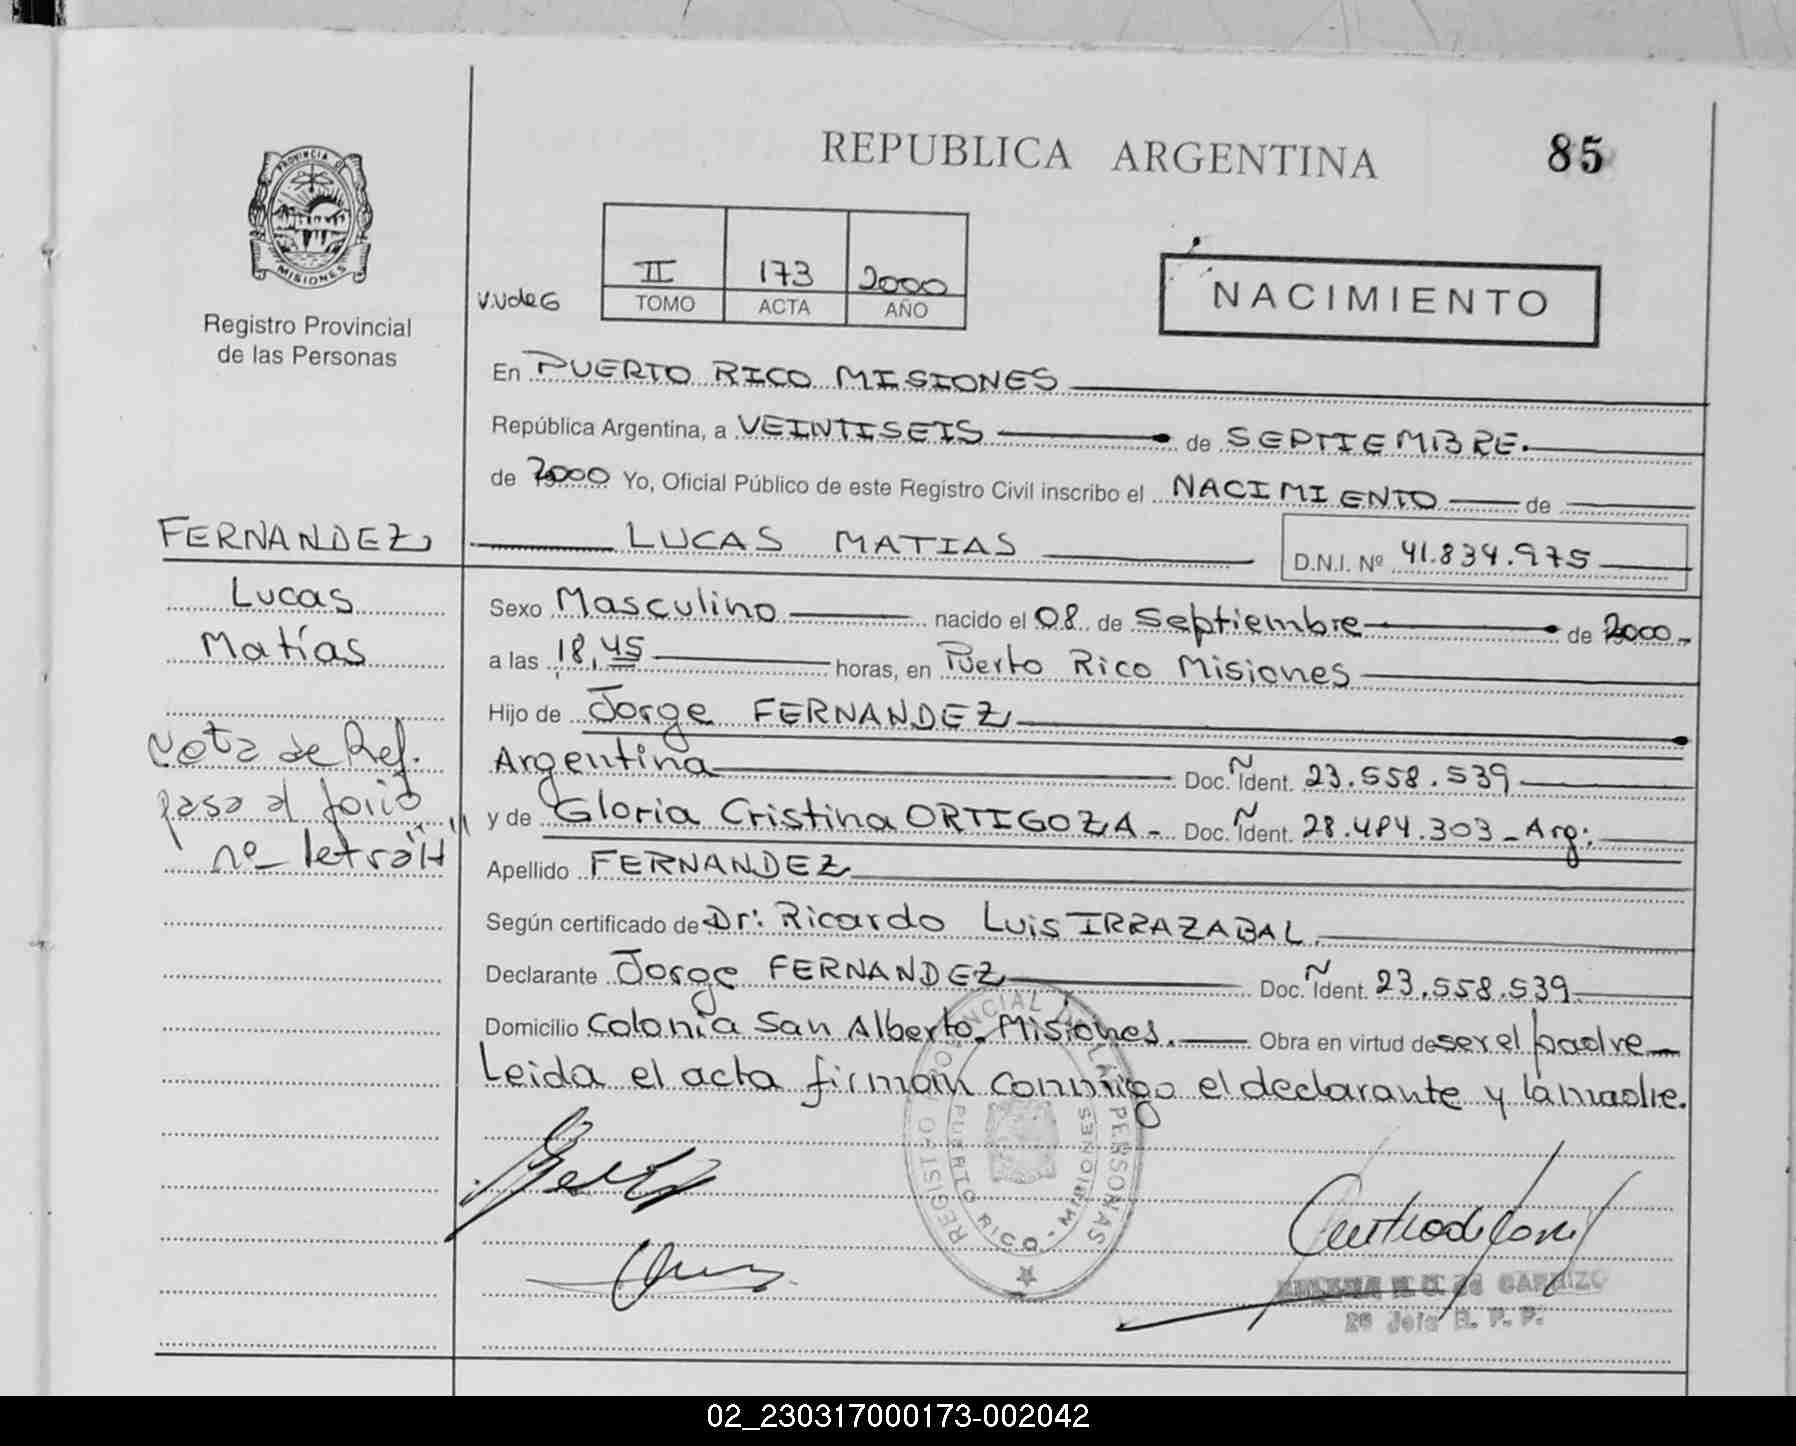 REPUBLICA ARGENTINA
85
PROVINCIA D
MISIONES
Registro Provincial
de las Personas
V.VdeG
II 173 2000
TOMO ACTA AÑO
NACIMIENTO
En PUERTO RICO MISIONES
República Argentina, a VEINTISEIS de SEPTIEMBRE.
de 2000 Yo, Oficial Público de este Registro Civil inscribo el NACIMIENTO de
FERNANDEZ, LUCAS MATIAS D.N.I. Nº 41.834.975
Lucas
Matías
Sexo Masculino nacido el 08 de Septiembre de 2000.
a las 18,45 horas, en Puerto Rico Misiones
Hijo de Jorge FERNANDEZ
Argentina Doc. Ñ Ident. 23.558.539
y de Gloria Cristina ORTIGOZA - Doc. Ñ Ident. 28.484.303 - Arg:
Apellido FERNANDEZ
Según certificado de Dr: Ricardo Luis IRRAZABAL.
Declarante Jorge FERNANDEZ Doc. Ñ Ident. 23.558.539
Domicilio Colonia San Alberto. Misiones. Obra en virtud de ser el padre
Leida el acta firman conmigo el declarante y la madre.
Nota de Ref.
pasa al folio
nº letra "H"
REGISTRO PROVINCIAL DE LAS PERSONAS
PUERTO RICO - MISIONES
de CARRIZO
Jefe R. P. P.
02_230317000173-002042